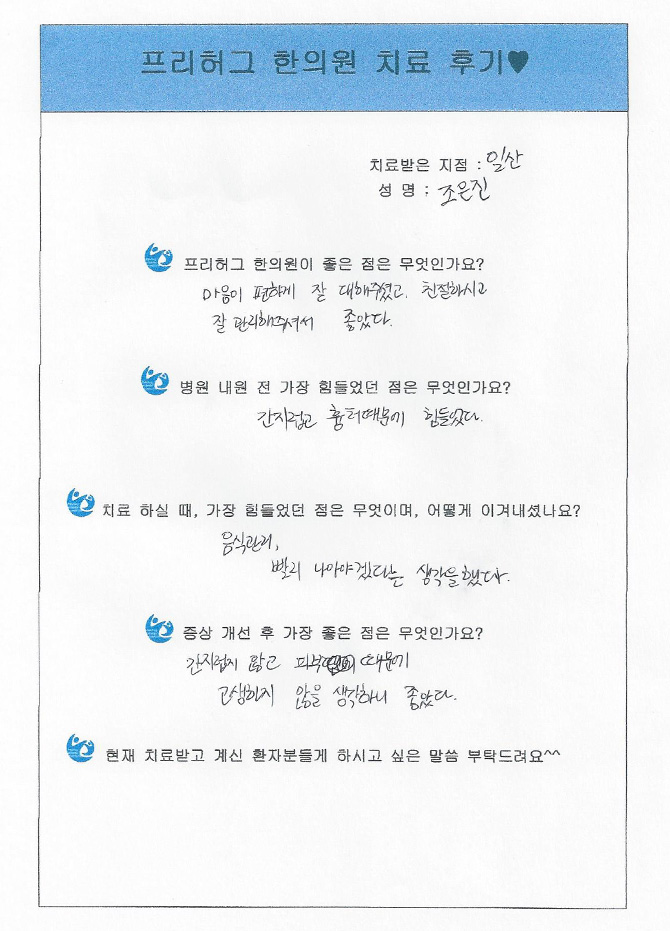 프리허그 한의원 치료 후기♥
치료받은 지점 : 일산
성 명 : 조은진
프리허그 한의원이 좋은 점은 무엇인가요?
마음이 편하게 잘 대해주셨고, 친절하시고
잘 관리해주셔서 좋았다.
병원 내원 전 가장 힘들었던 점은 무엇인가요?
간지럽고 흉터때문에 힘들었다.
치료 하실 때, 가장 힘들었던 점은 무엇이며, 어떻게 이겨내셨나요?
음식관리,
빨리 나아야겠다는 생각을했다.
증상 개선 후 가장 좋은 점은 무엇인가요?
간지럽지 않고 피부 때문에
고생하지 않을 생각하니 좋았다.
현재 치료받고 계신 환자분들게 하시고 싶은 말씀 부탁드려요^^